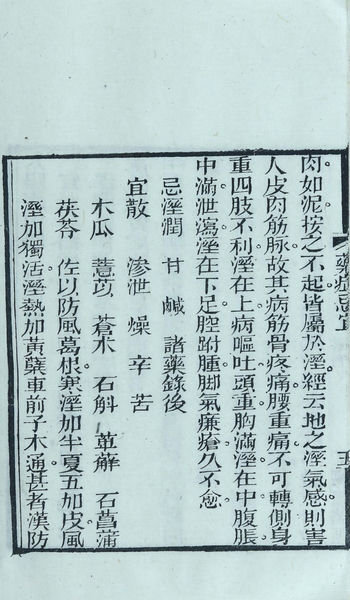 藥症忌宜
肉如泥按之不起皆屬於溼經云地之溼氣感則害
人皮肉筋脉故其病筋骨疼痛腰重痛不可轉側身
重四肢不利溼在上病嘔吐頭重胸滿溼在中腹脹
中滿泄瀉溼在下足腔跗腫脚氣臁瘡久不愈
忌溼潤 甘 鹹 諸藥錄後
宜散 滲泄 燥 辛 苦
木瓜 薏苡 蒼朮 石斛 萆薢 石菖蒲
茯苓 佐以防風葛根寒溼加半夏五加皮風
溼加獨活溼熱加黃蘗車前子木通甚者漢防